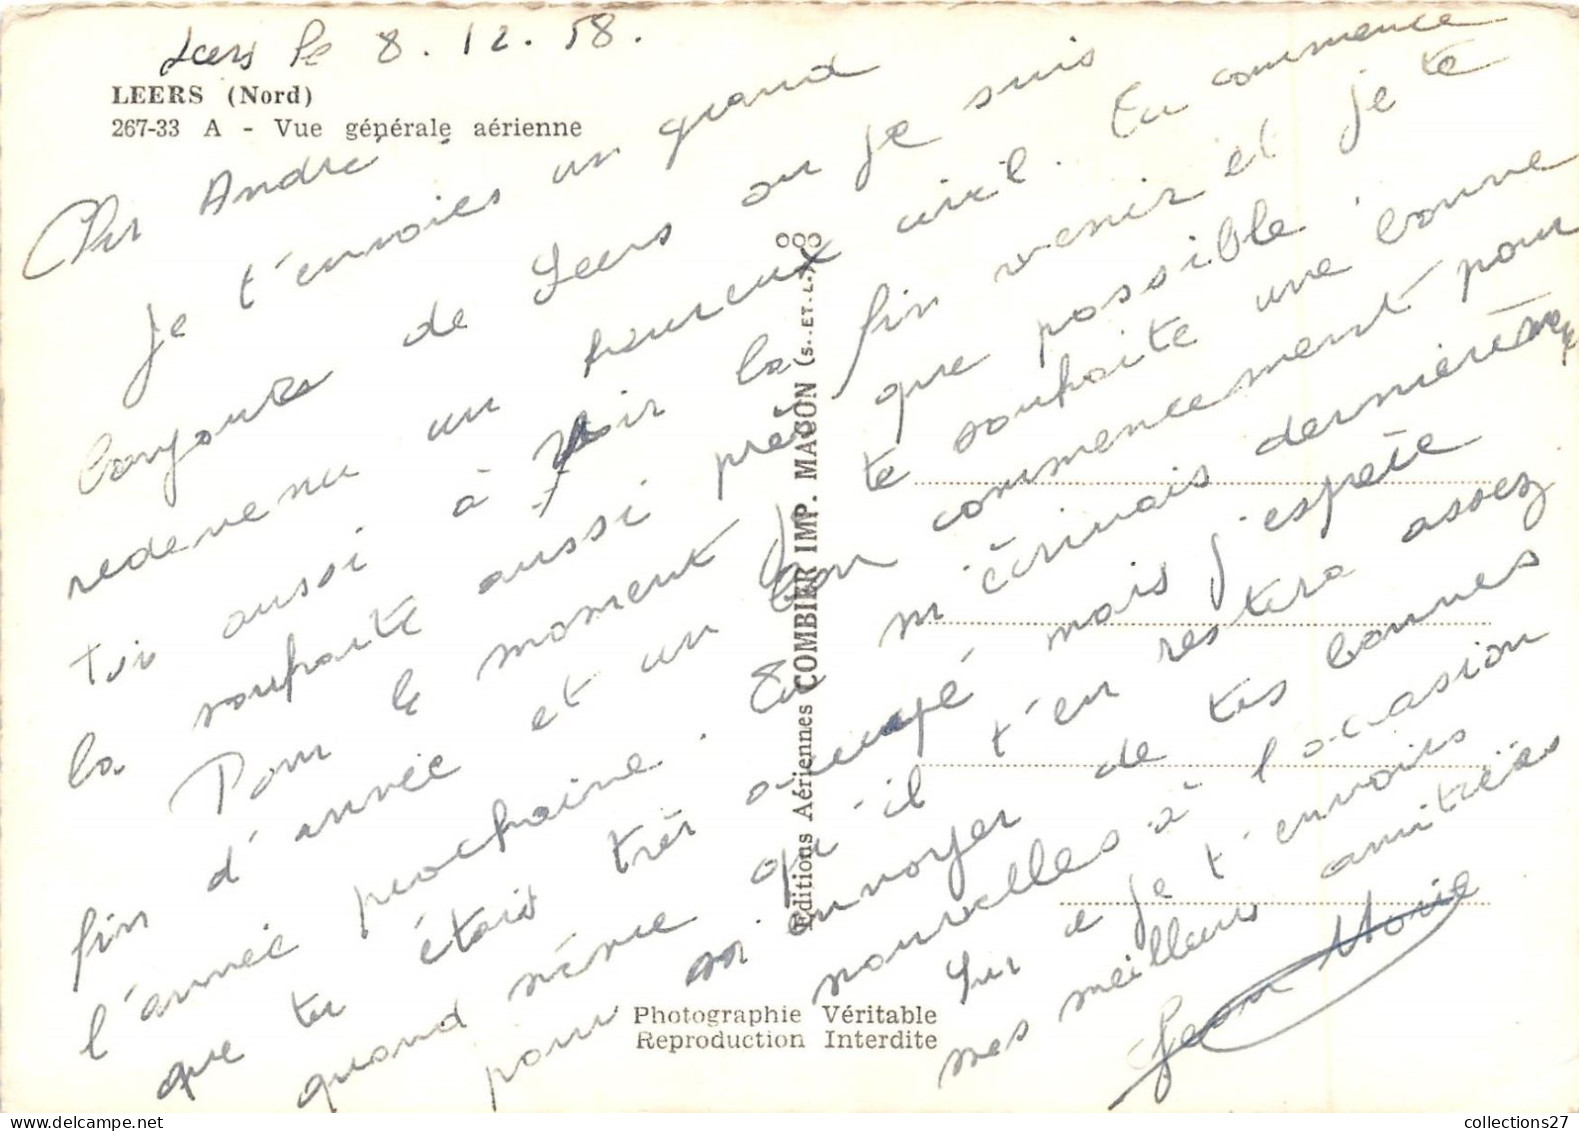 Leers le 8.12.58.
LEERS (Nord)
267-33 A - Vue générale aérienne
Cher André
Je t'envoies un grand
bonjour de Leers ou je suis
redevenu un heureux civil. Tu commence
toi aussi à voir la fin venir et je te
la souhaite aussi près que possible.
Pour le moment je te souhaite une bonne
fin d'année et un bon commencement pour
l'année prochaine. Tu m'écrivais dernièrement
que tu était très occupé mais j'espère
quand même qu'il t'en restera assez
pour m'envoyer de tes bonnes
nouvelles à l'occasion
Sur ce je t'envoies
mes meilleurs amitiées
Jean Marie
Editions Aériennes COMBIER IMP. MACON (S.-ET-L.)
Photographie Véritable
Reproduction Interdite
collections27